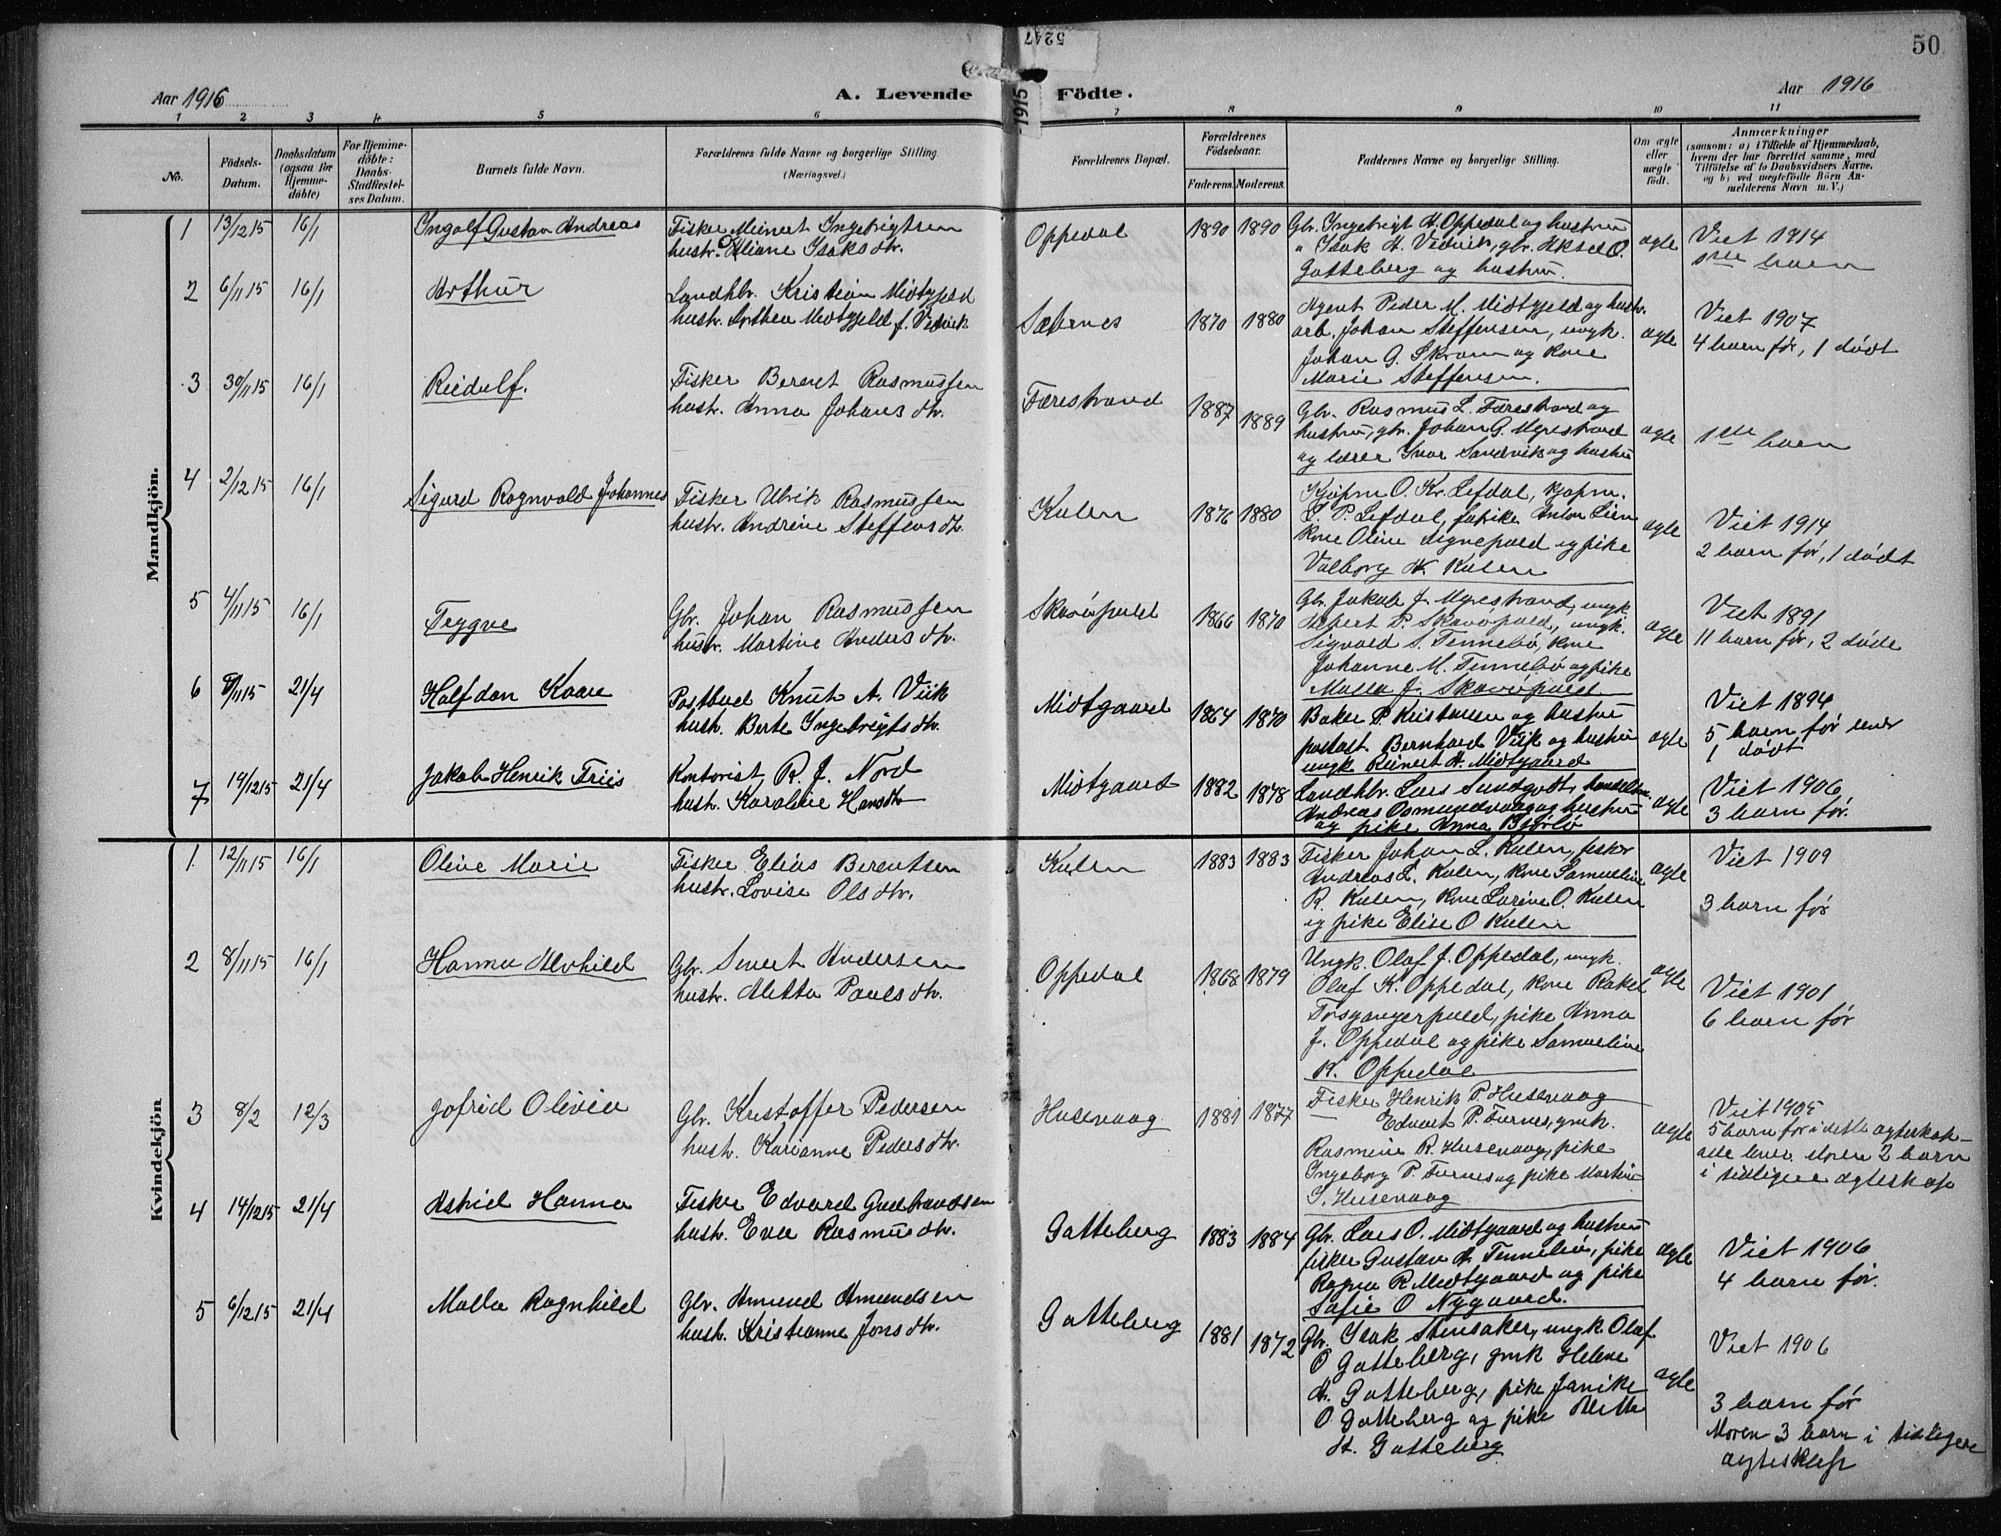 50
5247
1915
Aar 1916
A. Levende Födte.
Aar 1916
1 2 3 4 5 6 7 8 9 10 11
No.
Födsels-Datum.
Daabsdatum (ogsaa for Hjemme-döbte)
For Hjemme-döbte: Daabs-Stadfæstel-ses Datum.
Barnets fulde Navn.
Forældrenes fulde Navne og borgerlige Stilling (Næringsvei.)
Forældrenes Bopæl.
Forældrenes Födselsaar.
Faderens. Moderens.
Faddernes Navne og borgerlige Stilling.
Om ægte eller uægte födt.
Anmærkninger
(saasom: a) i Tilfælde af Hjemmedaab, hvem der har forrettet samme, med Tilföielse af to Daabsvidners Navne. og b) ved uægtefödte Börn An-melderens Navn m. V.)
Mandkjön.
1 13/12 15 16/1 Ingolf Gustav Andreas
Fisker Meinert Ingebrigtsen
hustr. Eliane Isaksdtr.
Oppedal 1890 1890
Gbr. Ingebrigt A. Oppedal og hustru
" Isak A. Vedvik, gbr. Aksel O.
Gotteberg og hustru.
ægte
Viet 1914
1ste barn
2 6/11 15 16/1 Arthur
Landhbr. Kristian Midtgjeld
hustr. Dorthea Midtgjeld f. Vedvik
Sæternes 1870 1880
Agent Peder M. Midtgjeld og hustr.
arb. Johan Steffensen, ungk.
Johan G. Skram og kone
Marie Steffensen.
ægte
Viet 1907
4 barn før, 1 dödt
3 30/11 15 16/1 Reidulf.
Fisker Bernt Rasmussen
hustr. Anna Johansdtr.
Færestrand 1887 1889
Gbr. Rasmus L. Færestrand og
hustru, gbr. Johan G. Myrestrand
og lærer Ivar Sandvik og hustru
ægte
1ste barn
4 2/12 15 16/1 Sigurd Ragnvald Johannes
Fisker Ulrik Rasmussen
hustr. Andrine Steffensdtr.
Kulen 1876 1880
Kjøpm O. Kr. Lefdal, kjøpm.
L. P. Lefdal, Anton Lien
kone Oline og pike
Valborg A. Kulen
ægte
Viet 1914
2 barn før, 1 dödt
5 4/11 15 16/1 Trygve
Gbr. Johan Rasmussen
hustr. Martine Andersdtr.
1866 1870
Gbr. Jakob J. Myrestrand, ungk.
ungk.
Sigvald S. Tennebø, kone
Johanne M. Tennebø og pike
Malla J.
ægte
Viet 1891
11 barn før, 2 døde
6 8/11 15 21/4 Halfdan Kaare
Postbud Knut A. Viik
hust. Berte Ingebrigtsdtr.
Midtgaard 1864 1870
Baker P. Kristensen og hustru
Bernhard Viik og hustru
ungk Reinert A. Midtgaard
ægte
Viet 1894
5 barn før
1 dödt
7 14/12 15 21/4 Jakob Henrik Friis
Kontorist R. J. Nord
hust. Karoline Hansdtr
Midtgaard 1882 1878
Landhbr. Lars Sundgodt,
Andreas Osmundvaag og hustru
og pike Anna Bjørlo
ægte
Viet 1906
3 barn før.
Kvindekjön
1 12/11 15 16/1 Oline Marie
Fisker Elias Berentsen
hustr. Lovise Olsdtr.
Kulen 1883 1883
Fisker Johan L. Kulen, fisker
Andreas L. Kulen, kone Samueline
R. Kulen, kone Larine O. Kulen
og pike Elise O Kulen
ægte
Viet 1909
3 barn før
2 8/11 15 16/1 Hanna Alvhild
Gbr. Sivert Andersen
hustr. Aletta Paulsdtr.
Oppedal 1868 1879
Ungk. Olaf J. Oppedal, ungk.
Olaf K. Oppedal, kone Rakel
pike Anna
J. Oppedal og pike Samueline
K. Oppedal
ægte
Viet 1901
6 barn før
3 8/2 12/3 Jofrid Olivia
Gbr. Kristoffer Pedersen
hustr. Karianne Pedersdtr.
Husevaag 1881 1877
Fisker Henrik P. Husevaag
— Edvart P. Furnes, gmk.
Rasmine R. Husevaag, pike
Ingeborg P. Furnes og pike Martine
S. Husevaag
ægte
Viet 1905
5 barn før i dette ægteskab
alle lever. Moren 2 barn
i tidligere ægteskap
4 14/12 15 21/4 Astrid Hanna
Fisker Edvard Gudbrandsen
hustr. Eva Rasmusdtr.
Gotteberg 1883 1884
Gbr. Lars O. Midtgaard og hustru
fisker Gustav A. Tennebø, pike
Ragna R. Midtgaard og pike
Sofie O. Nygaard.
ægte
Viet 1906
4 barn før.
5 6/12 15 21/4 Malla Ragnhild
Gbr. Amund Amundsen
hustr. Kristianne Jonsdtr.
Gotteberg 1881 1872
Gbr. Isak Stensaker, ungk Olaf
O Gotteberg, gmk Helene
A. Gotteberg, pike Janike
O Gotteberg og pike Aletta
A. Gotteberg
ægte
Viet 1906
3 barn før
Moren 3 barn i tidligere
ægteskap